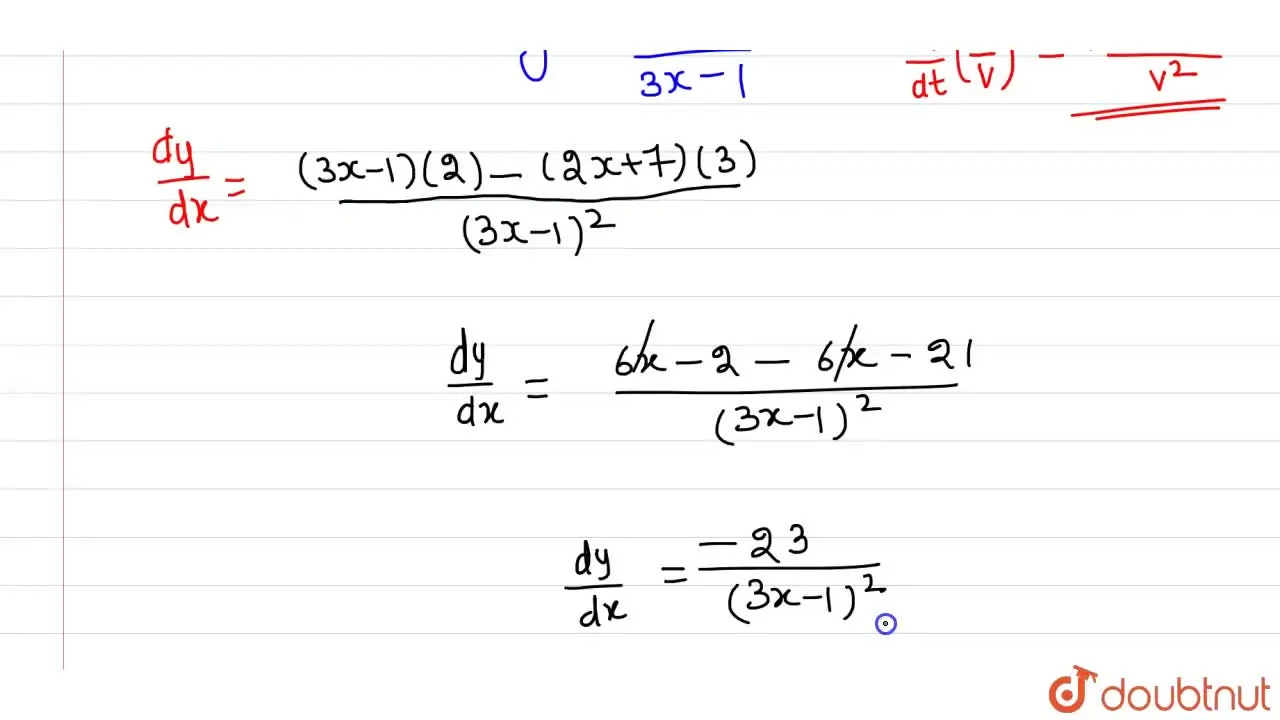 3x-1
d/dt (/v) - v²
dy/dx = ((3x-1)(2) - (2x+7)(3))/(3x-1)²
dy/dx = (6x - 2 - 6x - 21)/(3x-1)²
dy/dx = -23/(3x-1)²
doubtnut